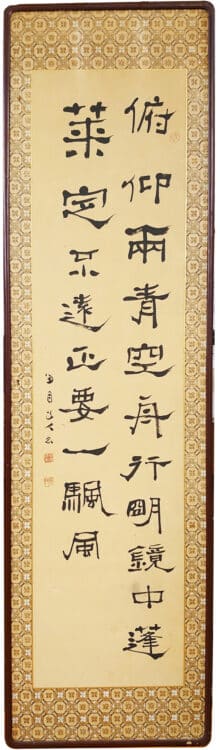 俯仰兩青空舟行明鏡中蓬
萊定不遠正要一颿風